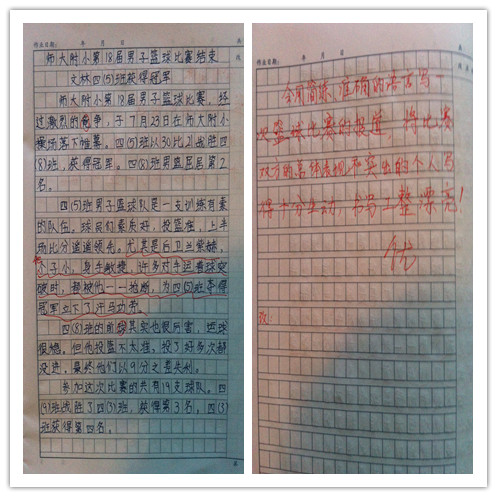 作业日期: 年 月 日
师大附小第18届男子篮球比赛结束
文林四(5)班获得冠军
师大附小第18届男子篮球比赛,经
过激烈的竞争,于7月23日在师大附小
操场落下帷幕。四(5)班以30比21战胜四
(8)班,获得冠军。四(8)班男篮屈居第2
名。
四(5)班男子篮球队是一支训练有素
的队伍,球员们素质好,投篮准,上半
场比分遥遥领先。尤其是后卫兰紫赫,
个子小,身手敏捷,许多对手运着球突
破时,都被他一一抢断,为四(5)班夺得
冠军立下了汗马功劳。
四(8)班的前锋其实也很厉害,运球
很熟。但他投篮不太准,投了好多次都
没进,最终他们以9分之差失利。
参加这次比赛的共有19支球队。四
(9)班战胜了四(3)班,获得第3名,四(3)
班获得第四名。
作业日期: 年 月 日
会用简练、准确的语言写一
次篮球比赛的报道,将比赛
双方的总体表现和突出的个人写
得十分生动,书写工整漂亮!
优